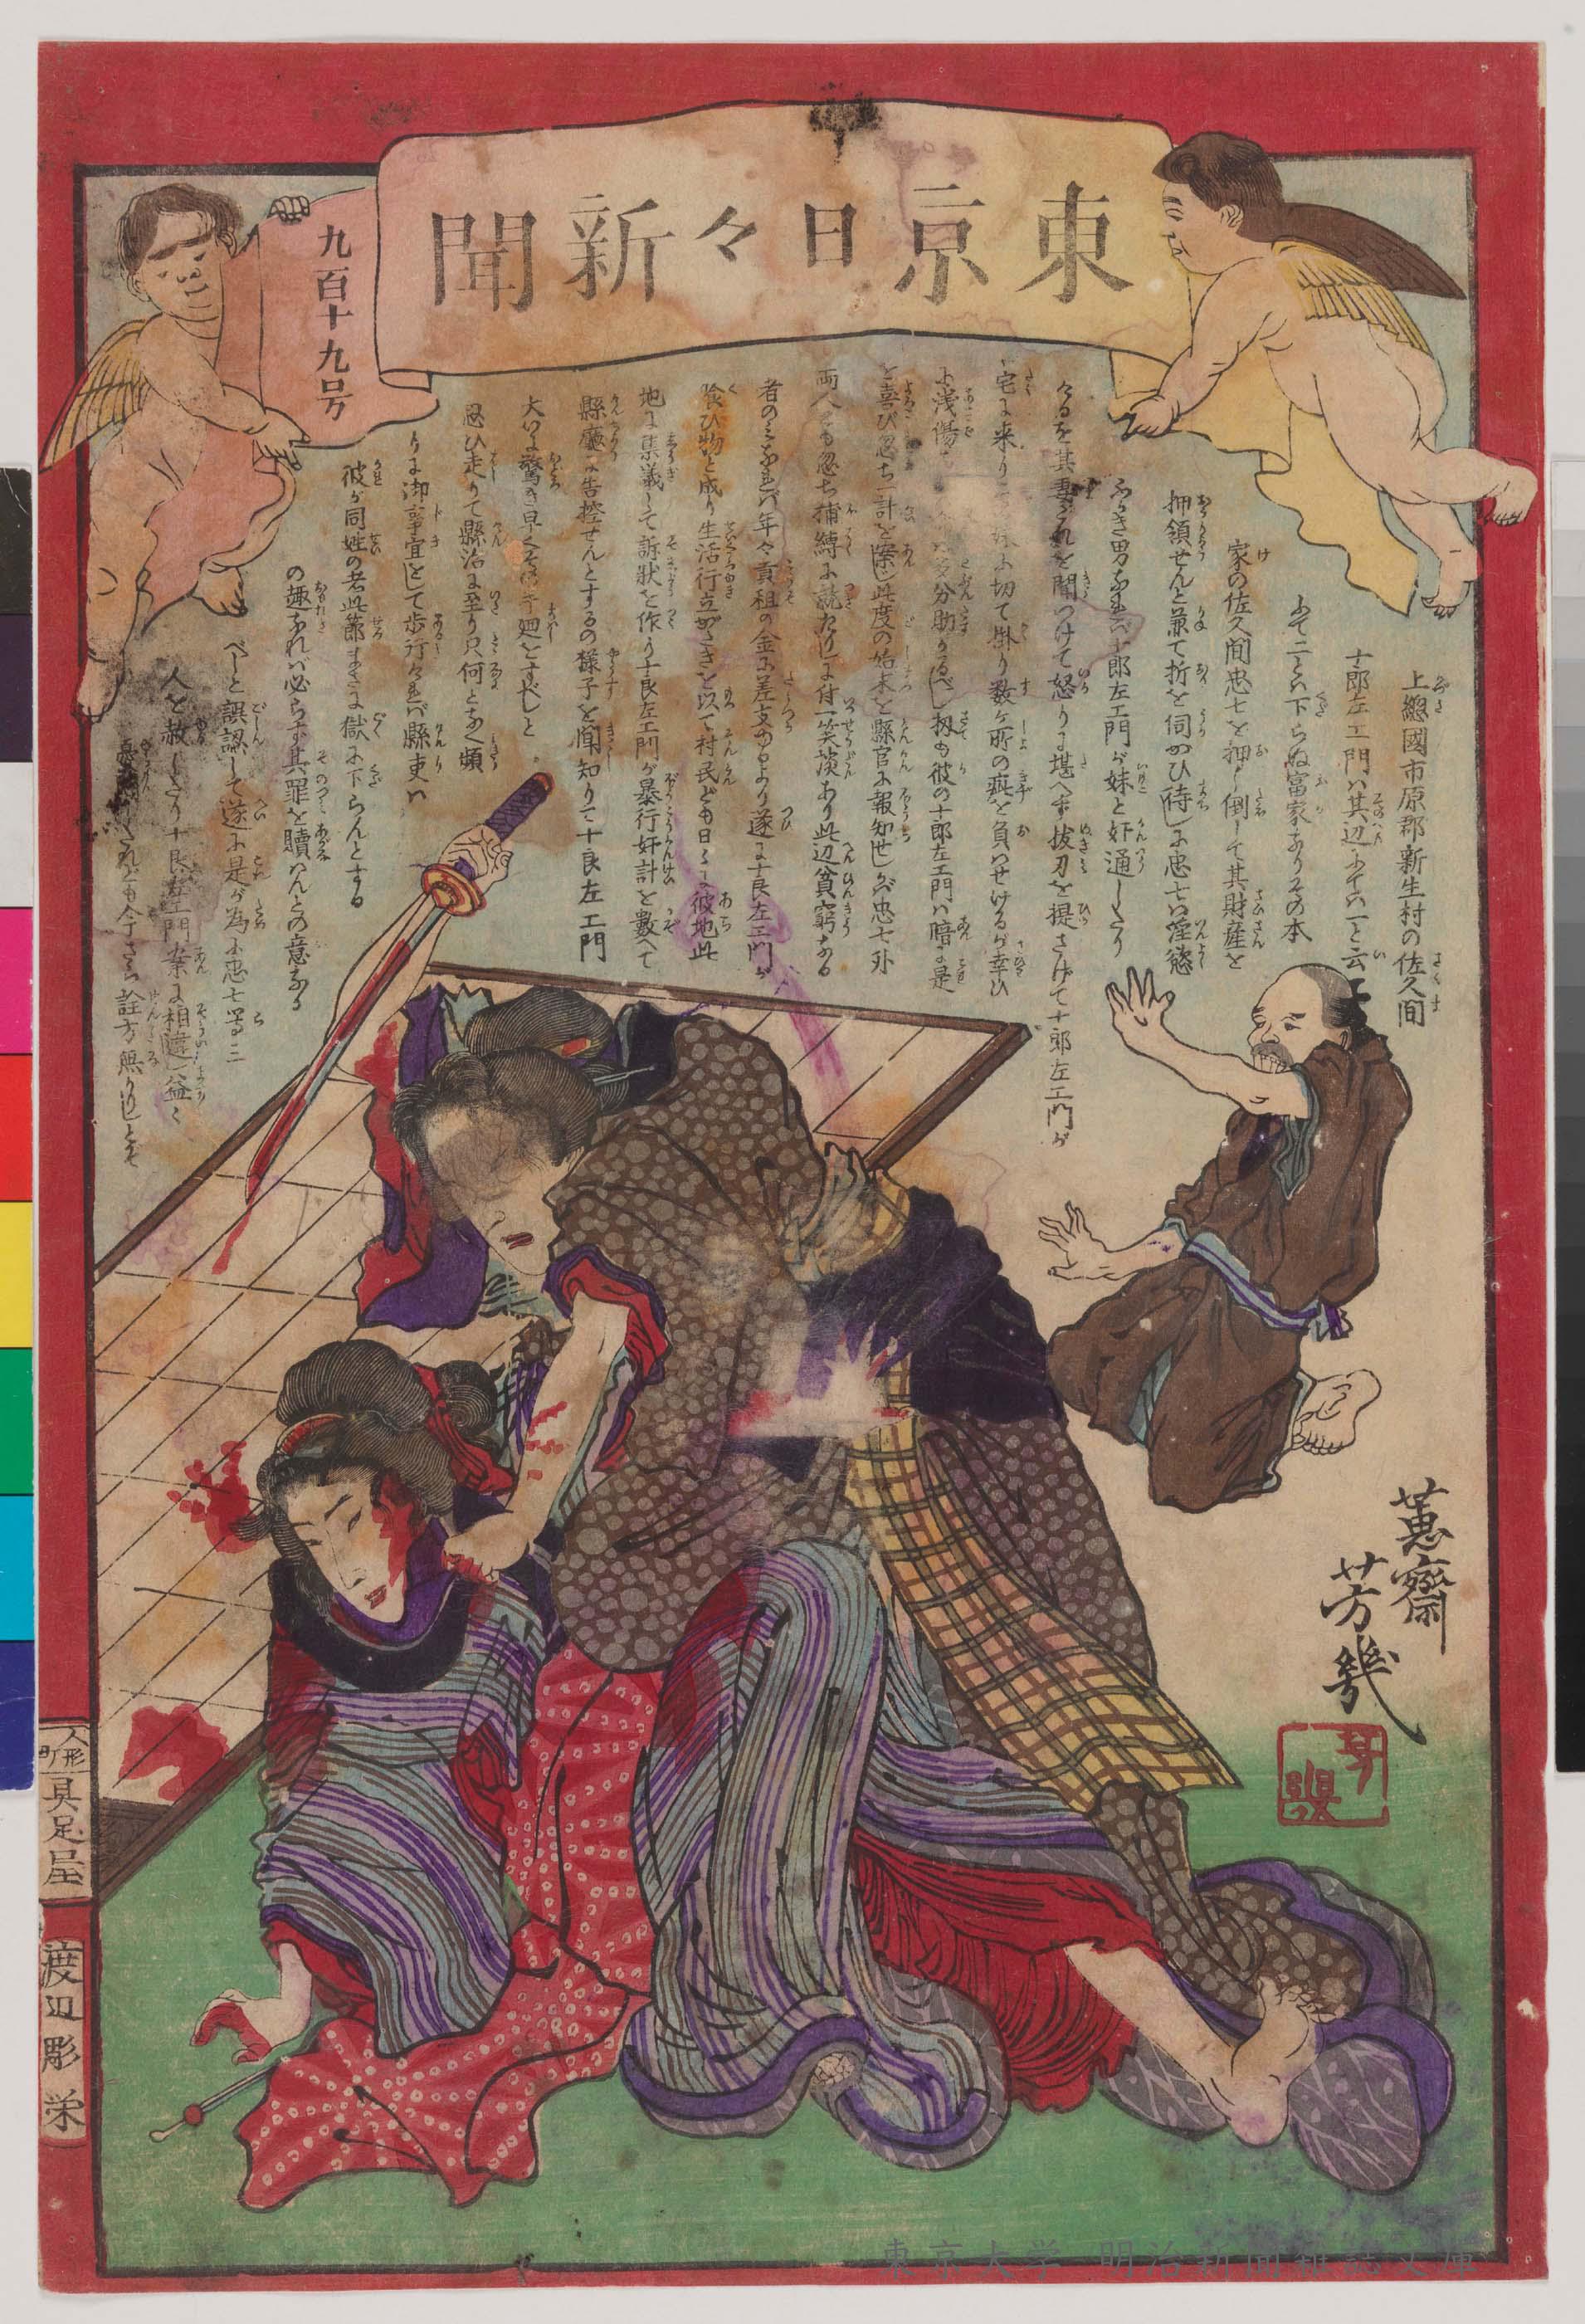 東京日々新聞
九百十九号
上總國市原郡新生村の佐久間
十郎左エ門ハ其辺に
下らぬ富家ありその本
家の佐久間忠七を押し倒して其財産を
押領せんと兼て折を伺ひ
男なれバ十郎左エ門が妹と奸通したり
を其妻これを聞つけて怒りに堪へず抜刀を提さげて十郎左エ門が
宅に来り 妹に切て掛り数ヶ所の疵を負ハせけるが幸ひ
に浅傷 扨も彼の十郎左エ門ハ暗に是
を喜び忽ち一計を案じ此度の始末を縣官に報知せしかバ忠七外
両人とも忽ち捕縛に就たりしに付一笑談あり此辺貧窮なる
者のミなれバ年々貢租の金に差支ゆるより遂に十良左エ門が
食ひ物と成り生活行立がたきを以て村民ども日々に彼地此
地に集議して訴状を作り十良左エ門が暴行奸計を数へて
縣廳に告控せんとするの様子を聞知りて十良左エ門
大いに驚き早く 廻をすべしと
忍ひ走りて縣治に至り只何となく頻
りに御事宜をして歩行けれバ縣吏ハ
彼が同姓の者此節まさに獄に下らんとする
の趣なれバ必らず其罪を贖ハんとの意なる
べしと誤認して遂に是が為に忠七等三
人を赦したり十良左エ門案に相違し益々
されども今さら詮方無りしとぞ
蕙齋
芳幾
人形町
具足屋
渡辺彫栄
東京大学 明治新聞雑誌文庫